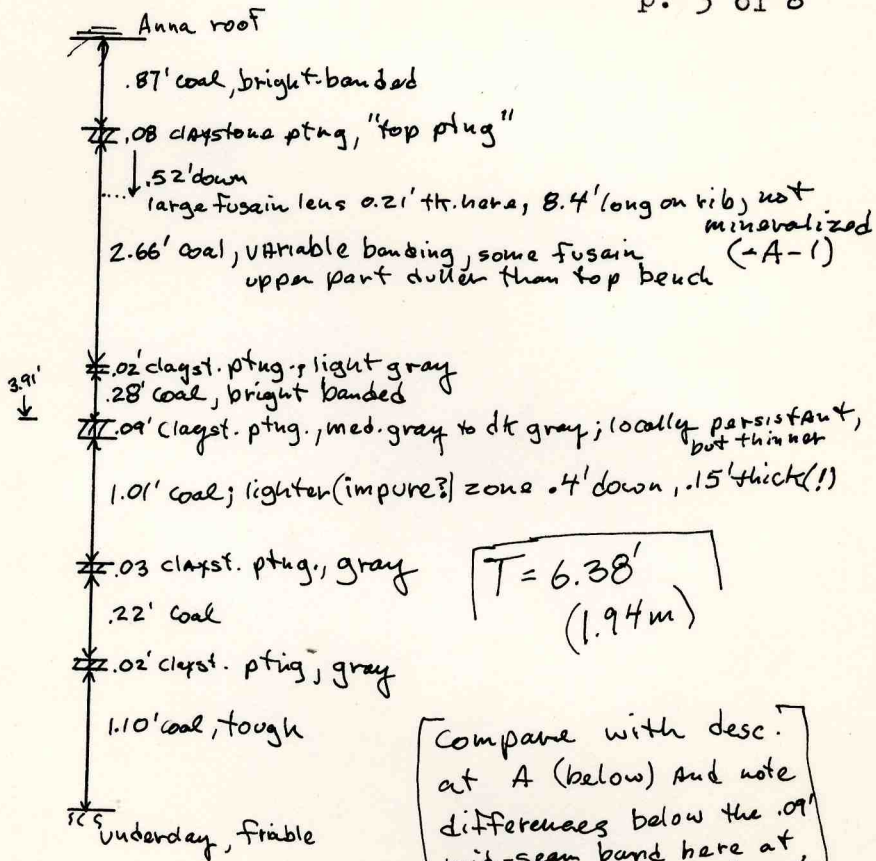 p. 5 of 8
Anna roof
.87' coal, bright-banded
.08 claystone ptng, "top ptng"
.52' down
large fusain lens 0.21' tk. here, 8.4' long on rib, not
mineralized
2.66' coal, variable banding, some fusain (-A-1)
upper part duller than top bench
.02' clayst. ptng., light gray
3.91'
.28' coal, bright banded
.09' clayst. ptng., med. gray to dk gray; locally persistant,
but thinner
1.01' coal; lighter (impure?) zone .4' down, .15' thick (!)
.03 clayst. ptng., gray
T = 6.38'
(1.94 m)
.22' coal
.02' clayst. ptng, gray
1.10' coal, tough
Compare with desc.
at A (below) and note
differences below the .09'
seam band here at
underclay, friable